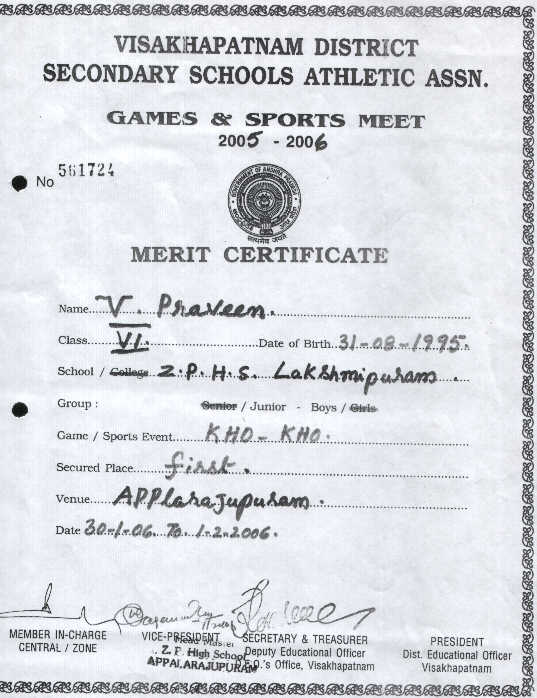 VISAKHAPATNAM DISTRICT
SECONDARY SCHOOLS ATHLETIC ASSN.
GAMES & SPORTS MEET
2005 - 2006
No 561724
GOVERNMENT OF ANDHRA PRADESH
सत्यमेव जयते
MERIT CERTIFICATE
Name....V. Praveen.
Class....VI. Date of Birth.31-08-1995.
School / College Z.P.H.S. Lakshmipuram.
Group : Senior / Junior - Boys / Girls
Game / Sports Event....KHO-KHO.
Secured Place....first.
Venue....APPlarajupuram.
Date 30-1-06. To 1-2-2006.
MEMBER IN-CHARGE
CENTRAL / ZONE
VICE-PRESIDENT
Head Master
Z. P. High School
APPALARAJUPURAM
SECRETARY & TREASURER
Deputy Educational Officer
D.E.O.'s Office, Visakhapatnam
PRESIDENT
Dist. Educational Officer
Visakhapatnam